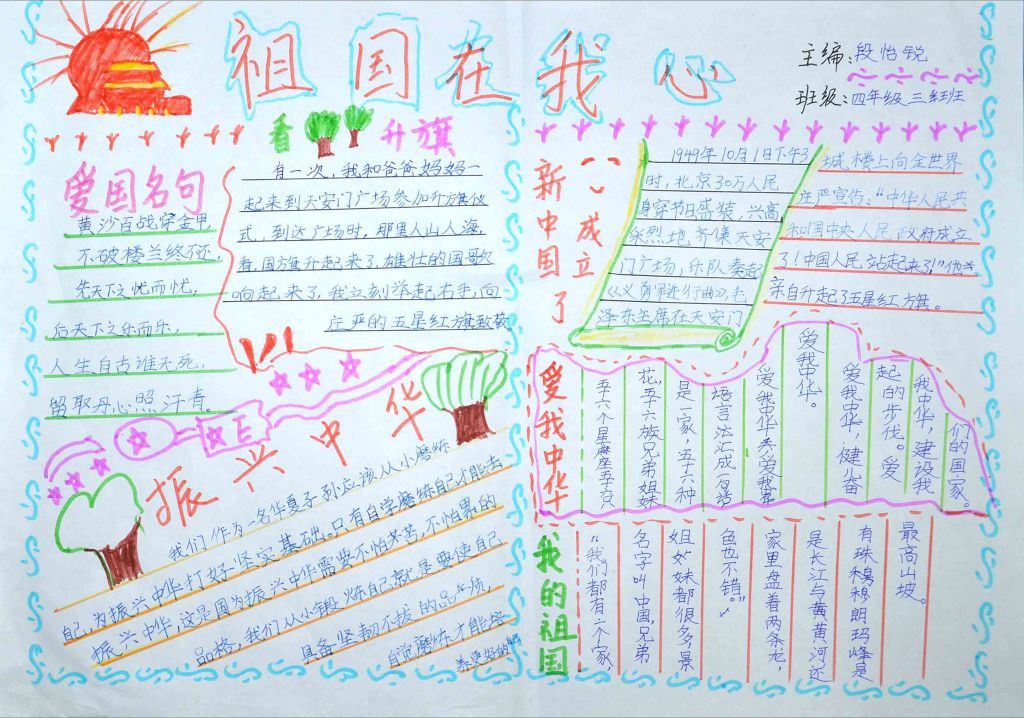 祖国在我心
主编:段怡锐
班级:四年级三班
爱国名句
黄沙百战穿金甲
不破楼兰终不还,
先天下之忧而忧,
后天下之乐而乐,
人生自古谁无死,
留取丹心照汗青。
看升旗
有一次,我和爸爸妈妈一
起来到天安门广场参加升旗仪
式,到达广场时,那里人山人海,
看,国旗升起来了,雄壮的国歌
响起来了,我立刻举起右手,向
庄严的五星红旗致敬
新中国成立了
1949年10月1日下午3
时,北京30万人民
身穿节日盛装,兴高
采烈地齐集天安
门广场,乐队奏起
《义勇军进行曲》,毛
泽东主席在天安门
城楼上向全世界
庄严宣告:“中华人民共
和国中央人民政府成立
了!中国人民站起来了!”他并
亲自升起了五星红旗。
振兴中华
我们作为一名华夏子孙应该从小磨练
自己,为振兴中华打好坚实基础。只有自学磨练自己才能去
振兴中华,这是因为振兴中华需要不怕辛苦,不怕累的
品格,我们从小锻炼自己就是要使自己
具备坚韧不拔的品质,
自觉磨练才能培
养更好的
爱我中华
五十六个星座五十六
花,五十六族兄弟姐妹
是一家,五十六种
语言汇成一句话
爱我中华
爱我中华,健奋
起的步伐。爱
我中华,建设我
们的国家。
爱我中华。
我的祖国
“我们都有一个家,
名字叫中国,兄弟
姐妹都很多,景
色也不错。”
家里盘着两条龙,
是长江与黄黄河还
有珠穆朗玛峰是
最高山坡。